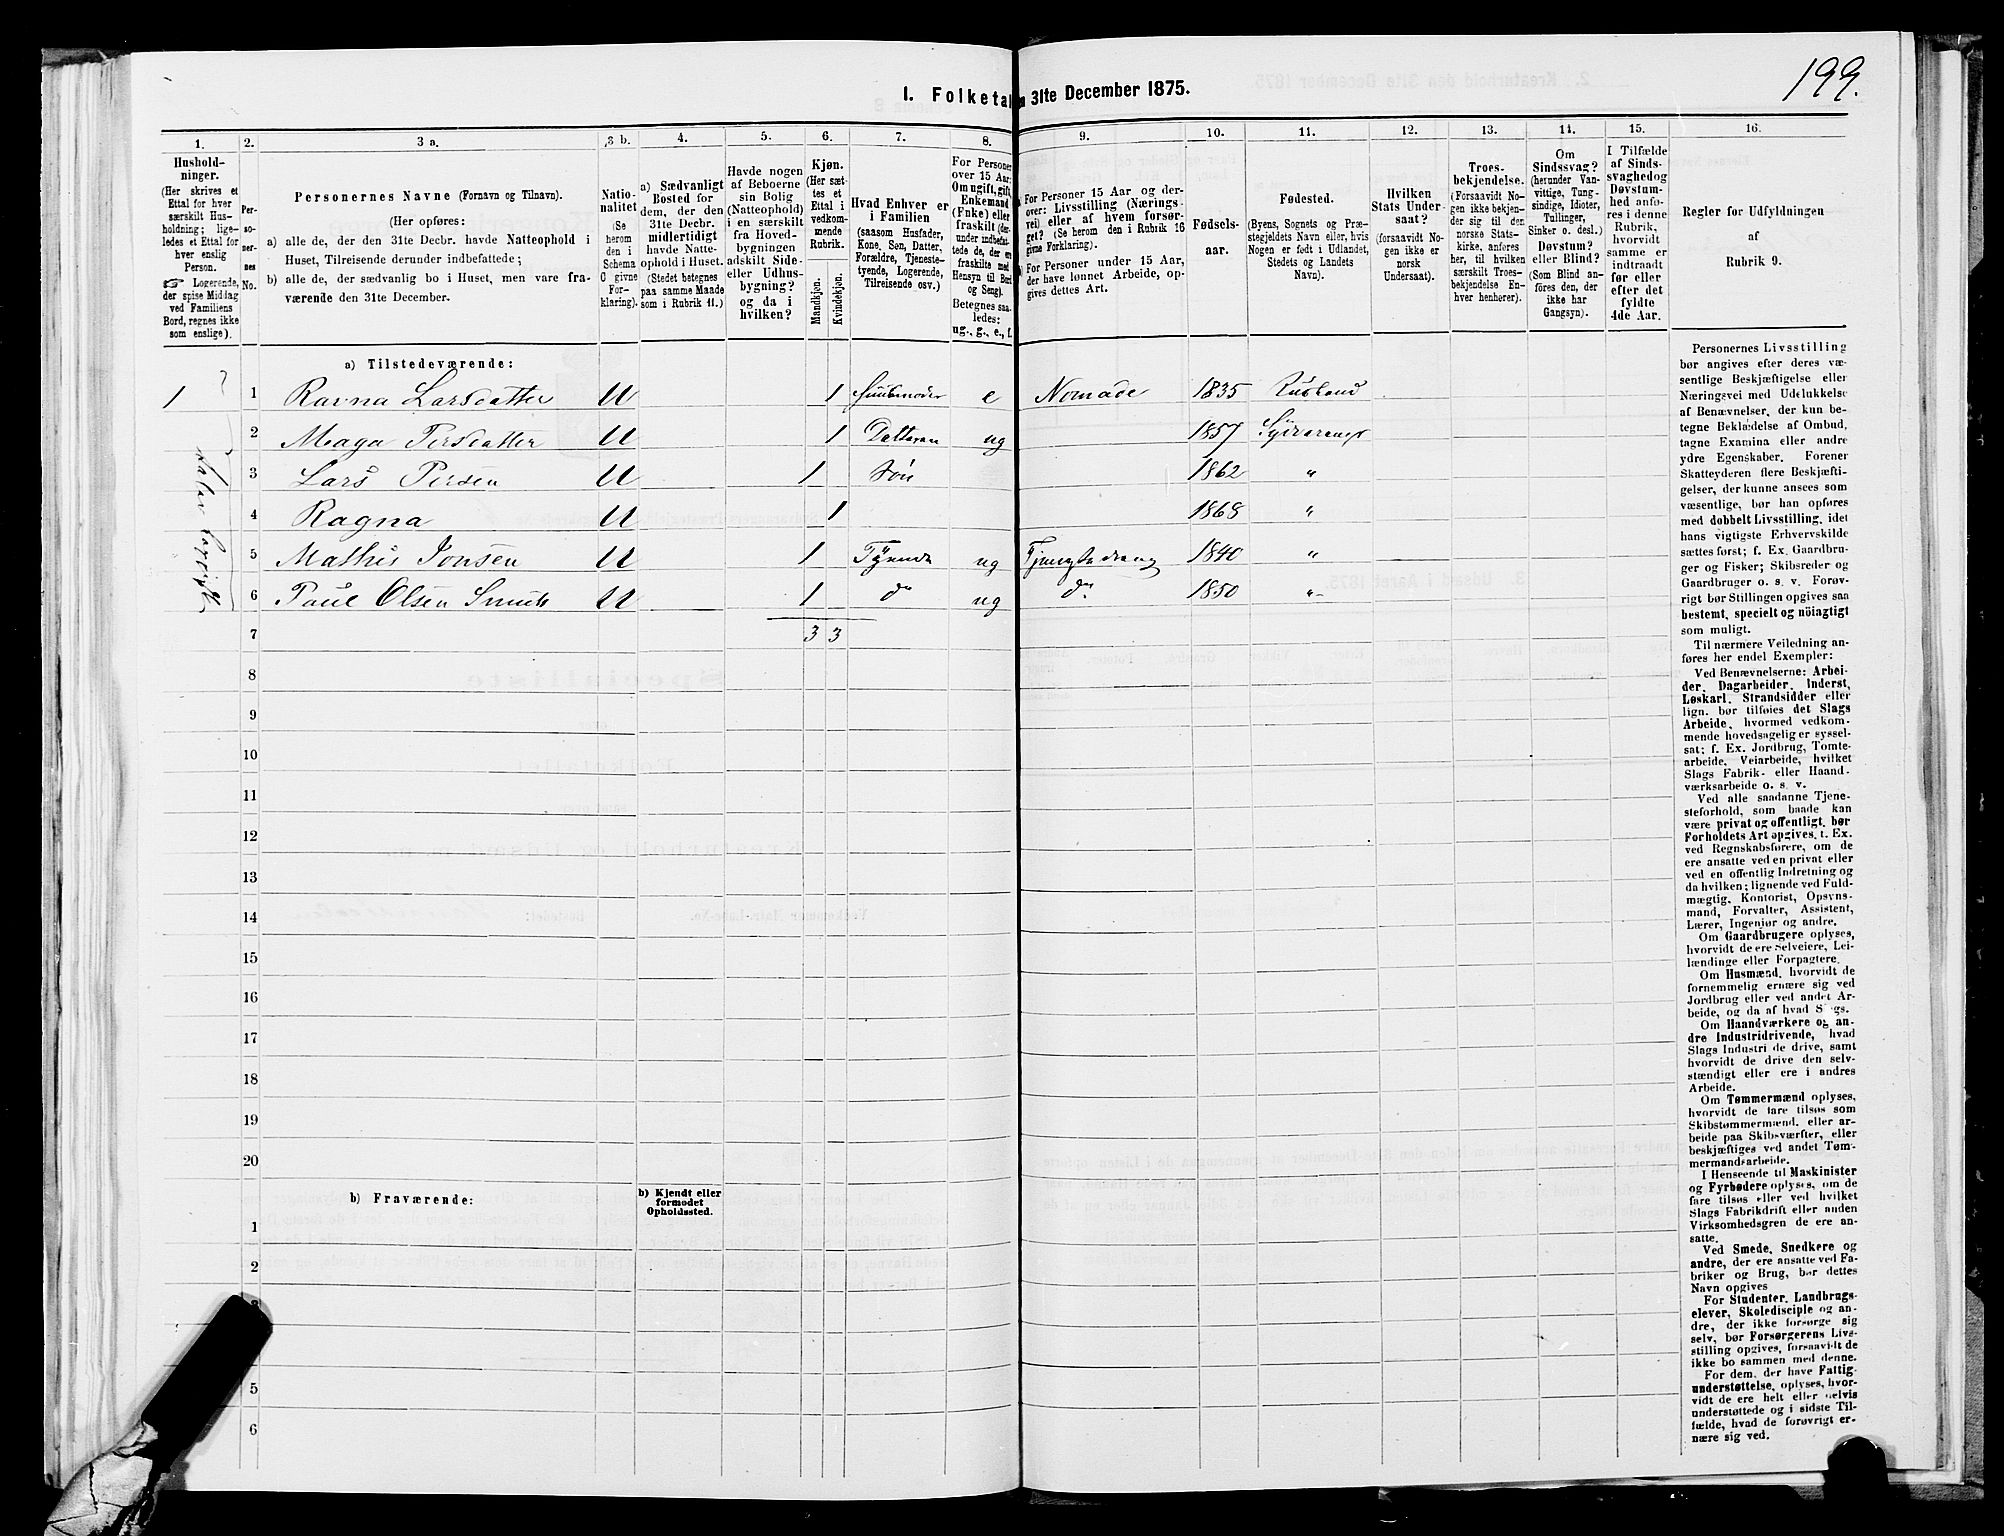 199.
I. Folketal
n 31te December 1875.
1.
2.
3 a.
3 b.
4.
5.
6.
7.
8.
9.
10.
11.
12.
13.
14.
15.
16.
Hushold-
ninger.
(Her skrives et
Ettal for hver
særskilt Hus-
holdning; lige-
ledes et Ettal for
hver enslig
Person.
☞ Logerende,
der spise Middag
ved Familiens
Bord, regnes ikke
som enslige).
Per-
so-
ner-
nes
No.
Personernes Navne (Fornavn og Tilnavn).
(Her opføres:
a) alle de, der den 31te Decbr. havde Natteophold i
Huset, Tilreisende derunder indbefattede;
b) alle de, der sædvanlig bo i Huset, men vare fra-
værende den 31te December.
Natio-
nalitet
(Se
herom
den i
Schema
C givne
For-
klaring).
a) Sædvanligt
Bosted for
dem, der den
31te Decbr.
midlertidigt
havde Natte-
ophold i Huset.
(Stedet betegnes
paa samme Maade
som i Rubrik 11.)
Havde nogen
af Beboerne
sin Bolig
(Natteophold)
i en særskilt
fra Hoved-
bygningen
adskilt Side-
eller Udhus-
bygning?
og da i
hvilken?
Kjøn.
(Her sæt-
tes et
Ettal i
vedkom-
mende
Rubrik.
Mandkjøn.
Kvindekjøn.
Hvad Enhver er
i Familien
(saasom Husfader,
Kone, Søn, Datter,
Forældre, Tjeneste-
tyende, Logerende,
Tilreisende osv.)
For Personer
over 15 Aar:
Om ugift, gift,
Enkemand
(Enke) eller
fraskilt (der-
under indbefat-
tede de, der ere
fraskilte med
Hensyn til Bord
og Seng).
Betegnes saa-
ledes:
ug., g., e., f.
For Personer 15 Aar og der-
over: Livsstilling (Nærings-
vei) eller af hvem forsør-
get? (Se herom den i Rubrik 16
givne Forklaring).
For Personer under 15 Aar,
der have lønnet Arbeide, op-
gives dettes Art.
Fødsels-
aar.
Fødested.
(Byens, Sognets og Præ-
stegjeldets Navn eller, hvis
Nogen er født i Udlandet,
Stedets og Landets
Navn).
Hvilken
Stats Under-
saat?
(forsaavidt No-
gen ikke er
norsk
Undersaat).
Troes-
bekjendelse.
(Forsaavidt No-
gen ikke bekjen-
der sig til den
norske Stats-
kirke, anføres
her, til hvilken
særskilt Troes-
bekjendelse En-
hver henhører).
Om
Sindssvag?
(herunder Van-
vittige, Tung-
sindige, Idioter,
Tullinger,
Sinker o. desl.)
Døvstum?
eller Blind?
(Som Blind an-
føres den, der
ikke har
Gangsyn).
I Tilfælde
af Sinds-
svaghed og
Døvstum-
hed anfø-
res i denne
Rubrik,
hvorvidt
samme er
indtraadt
før eller
efter det
fyldte
4de Aar.
Regler for Udfyldningen
af
Rubrik 9.
a) Tilstedeværende:
1 1 Ravna Larsdatter U 1 Huusmoder e Nomade 1835 Rusland
2 Maga Persdatter U 1 Datteren ug 1857 Sydvaranger
3 Lars Persen U 1 Søn 1862 "
4 Ragna U 1 1868 "
5 Mathis Jonsen U 1 Tyende ug Tjenestedreng 1840 "
6 Paul Olsen U 1 do ug do 1850 "
7 3 3
8
9
10
11
12
13
14
15
16
17
18
19
20
b) Fraværende:
b) Kjendt eller
formodet
Opholdssted.
1
2
5
6
Personernes Livsstilling
bør angives efter deres væ-
sentlige Beskjæftigelse eller
Næringsvei med Udelukkelse
af Benævnelser, der kun be-
tegne Beklædelse af Ombud,
tagne Examina eller andre
ydre Egenskaber. Forener
Skatteyderen flere Beskjæfti-
gelser, der kunne ansees som
væsentlige, bør han opføres
med dobbelt Livsstilling, idet
hans vigtigste Erhvervskilde
sættes først; f. Ex. Gaardbru-
ger og Fisker; Skibsreder og
Gaardbruger o. s. v. Forøv-
rigt bør Stillingen opgives saa
bestemt, specielt og nöiagtigt
som muligt.
Til nærmere Veiledning an-
føres her endel Exempler:
Ved Benævnelserne: Arbei-
der, Dagarbeider, Inderst,
Løskarl, Strandsidder eller
lign. bør tilføies det Slags
Arbeide, hvormed vedkom-
mende hovedsagelig er syssel-
sat; f. Ex. Jordbrug, Tomte-
arbeide, Veiarbeide, hvilket
Slags Fabrik- eller Haand-
værksarbeide o. s. v.
Ved alle saadanne Tjene-
steforhold, som baade kan
være privat og offentligt, bør
Forholdets Art opgives, t. Ex.
ved Regnskabsførere, om de
ere ansatte ved en privat eller
ved en offentlig Indretning og
da hvilken; lignende ved Fuld-
mægtig, Kontorist, Opsyns-
mand, Forvalter, Assistent,
Lærer, Ingeniør og andre.
Om Gaardbrugere oplyses,
hvorvidt de ere Selveiere, Lei-
lændinge eller Forpagtere.
Om Husmænd, hvorvidt de
fornemmelig ernære sig ved
Jordbrug eller ved andet Ar-
beide, og da af hvad Slags.
Om Haandværkere og an-
dre Industridrivende, hvad
Slags Industri de drive, samt
hvorvidt de drive den selv-
stændigt eller ere i andres
Arbeide.
Om Tømmermænd oplyses,
hvorvidt de fare tilsøs som
Skibstømmermænd, eller ar-
beide paa Skibsværfter, eller
beskjæftiges ved andet Tøm-
mermandsarbeide.
I Henseende til Maskinister
og Fyrbødere oplyses, om de
fare tilsøs eller ved hvilket
Slags Fabrikdrift eller anden
Virksomhedsgren de ere an-
satte.
Ved Smede, Snedkere og
andre, der ere ansatte ved Fa-
briker og Brug, bør dettes
Navn opgives
For Studenter, Landbrugs-
elever, Skoledisciple og an-
dre, der ikke forsørge sig
selv, bør Forsørgerens Livs-
stilling opgives, forsaavidt de
ikke bo sammen med denne.
For dem, der have Fattig-
understøttelse, oplyses, hvor-
vidt de ere helt eller delvis
understøttede og i sidste Til-
fælde, hvad de forøvrigt er-
nære sig ved.